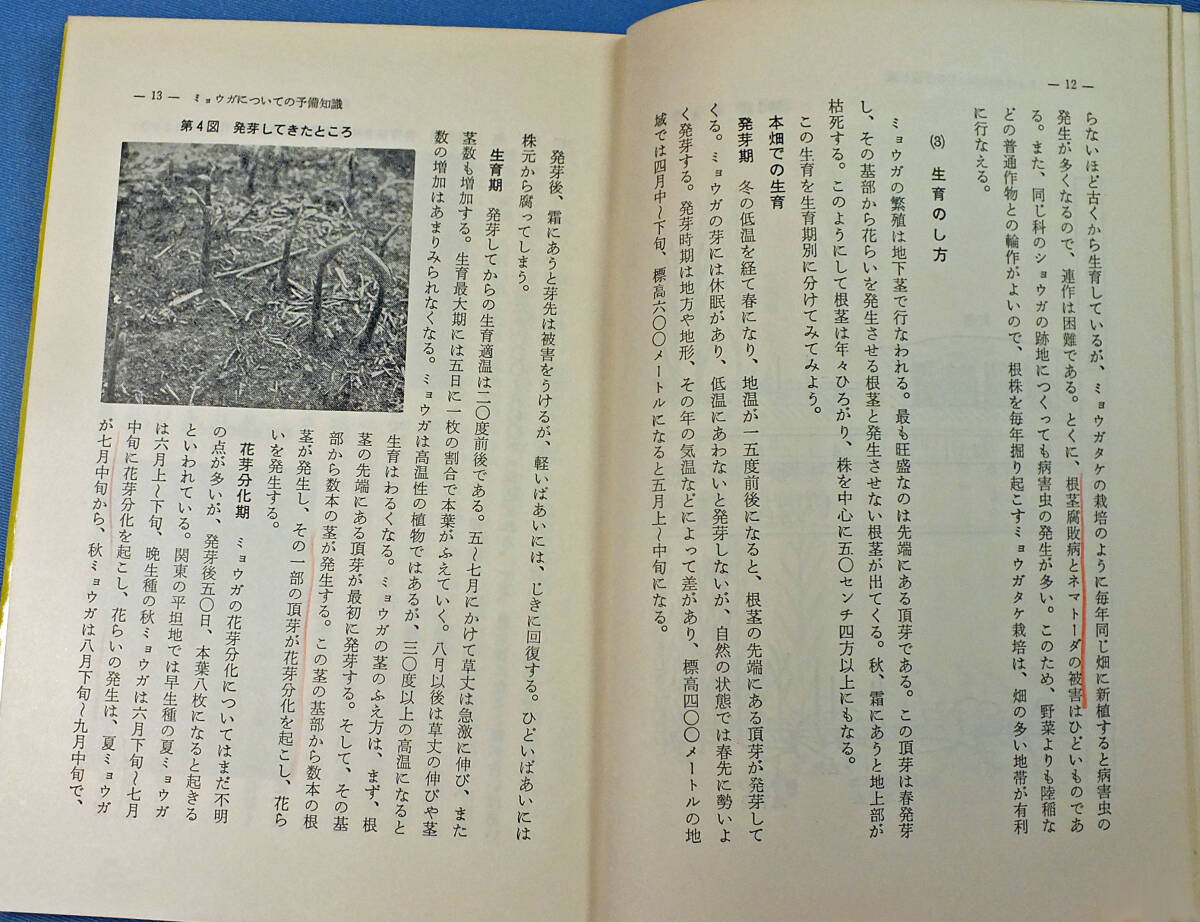 — 12 —
らないほど古くから生育しているが、ミョウガタケの栽培のように毎年同じ畑に新植すると病害虫の
発生が多くなるので、連作は困難である。とくに、根茎腐敗病とネマトーダの被害はひどいものであ
る。また、同じ科のショウガの跡地につくっても病害虫の発生が多い。このため、野菜よりも陸稲な
どの普通作物との輪作がよいので、根株を毎年掘り起こすミョウガタケ栽培は、畑の多い地帯が有利
に行なえる。
(3) 生育のし方
ミョウガの繁殖は地下茎で行なわれる。最も旺盛なのは先端にある頂芽である。この頂芽は春発芽
し、その基部から花らいを発生させる根茎と発生させない根茎が出てくる。秋、霜にあうと地上部が
枯死する。このようにして根茎は年々ひろがり、株を中心に五〇センチ四方以上にもなる。
この生育を生育期別に分けてみてみよう。
本畑での生育
発芽期 冬の低温を経て春になり、地温が一五度前後になると、根茎の先端にある頂芽が発芽して
くる。ミョウガの芽には休眠があり、低温にあわないと発芽しないが、自然の状態では春先に勢いよ
く発芽する。発芽時期は地方や地形、その年の気温などによって差があり、標高四〇〇メートルの地
域では四月中〜下旬、標高六〇〇メートルになると五月上〜中旬になる。
— 13 — ミョウガについての予備知識
発芽後、霜にあうと芽先は被害をうけるが、軽いばあいには、じきに回復する。ひどいばあいには
株元から腐ってしまう。
生育期 発芽してからの生育適温は二〇度前後である。五〜七月にかけて草丈は急激に伸び、また
茎数も増加する。生育最大期には五日に一枚の割合で本葉がふえていく。八月以後は草丈の伸びや茎
数の増加はあまりみられなくなる。ミョウガは高温性の植物ではあるが、三〇度以上の高温になると
生育はわるくなる。ミョウガの茎のふえ方は、まず、根
茎の先端にある頂芽が最初に発芽する。そして、その基
部から数本の茎が発生する。この茎の基部から数本の根
茎が発生し、その一部の頂芽が花芽分化を起こし、花ら
いを発生する。
花芽分化期 ミョウガの花芽分化についてはまだ不明
の点が多いが、発芽後五〇日、本葉八枚になると起きる
といわれている。関東の平坦地では早生種の夏ミョウガ
は六月上〜下旬、晩生種の秋ミョウガは六月下旬〜七月
中旬に花芽分化を起こし、花らいの発生は、夏ミョウガ
が七月中旬から、秋ミョウガは八月下旬〜九月中旬で、
第4図 発芽してきたところ